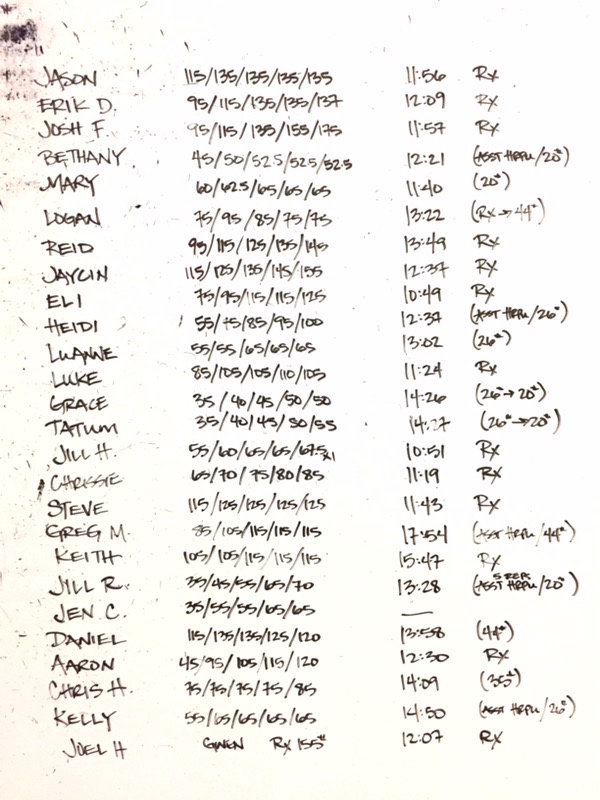 JASON 115/135/135/135/135 11:56 Rx
ERIK D. 95/115/135/135/137 12:09 Rx
JOSH F. 95/115/135/155/175 11:57 Rx
BETHANY 45/50/52.5/52.5/52.5 12:21 (ASST HRPU/20#)
MARY 60/62.5/65/65/65 11:40 (20#)
LOGAN 75/95/85/75/75 13:22 (Rx→44#)
REID 95/115/125/135/145 13:49 Rx
JAYCIN 115/125/135/145/155 12:37 Rx
ELI 75/95/115/115/125 10:49 Rx
HEIDI 55/75/85/95/100 12:37 (ASST HRPU/26#)
LUANNE 55/55/65/65/65 13:02 (26#)
LUKE 85/105/105/110/105 11:24 Rx
GRACE 35/40/45/50/50 14:26 (26→20#)
TATUM 35/40/45/50/55 14:27 (26#→20#)
JILL H. 55/60/65/65/67.5x1 10:51 Rx
CHRISSIE 65/70/75/80/85 11:19 Rx
STEVE 115/125/125/125/125 11:43 Rx
GREG M. 85/105/115/115/115 17:54 (ASST HRPU/44#)
KEITH 105/105/115/115/115 15:47 Rx
JILL R. 35/45/55/65/70 13:28 (ASST HRPU/20#)
JEN C. 35/55/55/65/65 —
DANIEL 115/135/135/125/120 13:58 (44#)
AARON 45/95/105/115/120 12:30 Rx
CHRIS H. 75/75/75/75/85 14:09 (35#)
KELLY 55/65/65/65/65 14:50 (ASST HRPU/26#)
JOEL H GWEN Rx 155# 12:07 Rx